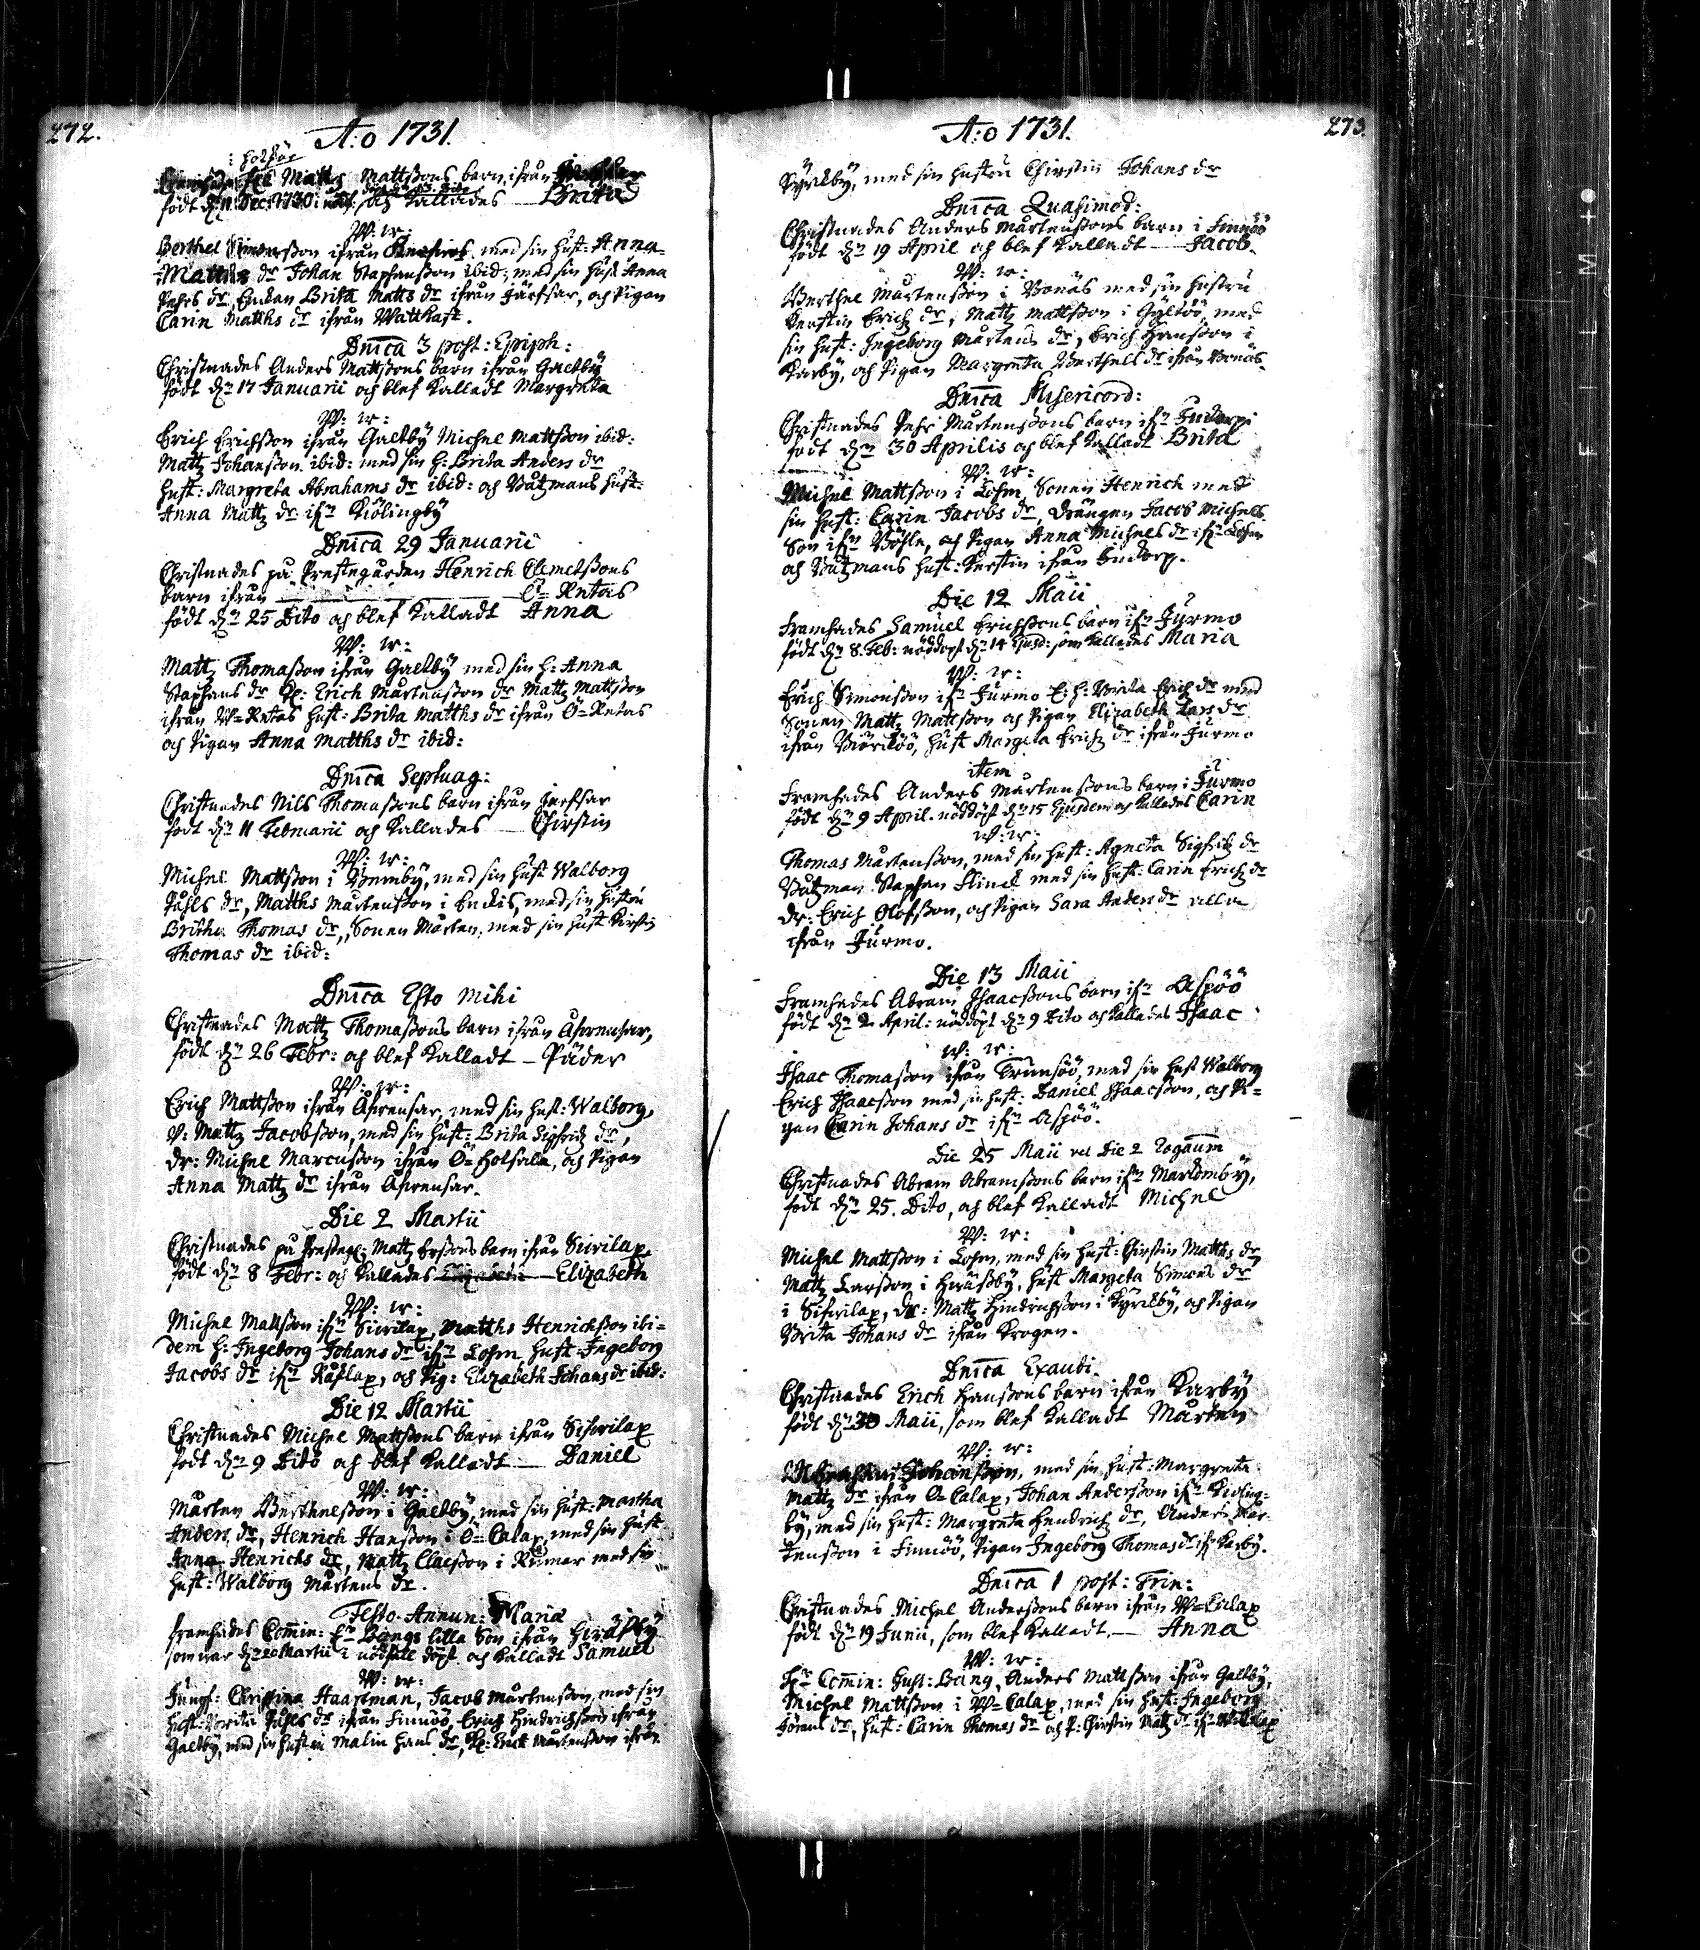 272.
A:o 1731.
Matts Mattssons barn ifrån
födt Dec: 1730 och kallades — Brita
W: w:
Berthel Simonsson ifrån med sin hust: Anna
Matths dr Johan Staphansson ibid; med sin hust Anna
Pehrs dr, Enckan Brita Matts dr ifrån Järfsar, och Pigan
Carin Matths dr ifrån Wattkast.
Dnica 3 post: Epiph:
Christnades Anders Mattssons barn ifrån Galtby
födt dn 17 Januarii och blef kalladt Margreta
W: w:
Erich Erichsson ifrån Galtby Michel Mattsson ibid:
Mattz Johansson ibid: med sin h: Brita Anders dr
hust: Margreta Abrahams dr ibid: och Båtzmans hust:
Anna Mattz dr ifn Kiölingby
Dnica 29 Januarii
Christnades på Prestegården Henrich Clemetssons
barn ifrån — Ö= Retais
födt dn 25 Dito och blef kalladt Anna
W: w:
Mattz Thomasson ifrån Galtby med sin h: Anna
Staphans dr Erich Mårtensson dr Mattz Mattsson
ifrån W=Retais hust: Brita Matths dr ifrån Ö=Retais
och Pigan Anna Matths dr ibid:
Dnica Septuag:
Christnades Nils Thomassons barn ifrån Järfsar
födt dn 11 Februarii och kallades — Chirstin
W: w:
Michel Mattsson i med sin hust Walborg
Påhls dr, Matths Mårtensson i med sin hustru
Britha Thomas dr, Sonen Mårten, med sin hust Kirstin
Thomas dr ibid:
Dnica Esto mihi
Christnades Mattz Thomassons barn ifrån Åfvensar,
födt dn 26 Febr: och blef kalladt — Päder
W: w:
Erich Mattsson ifrån Åfvensar, med sin hust: Walborg,
Mattz Jacobsson, med sin hust: Brita Sigfridz dr,
dr: Michel Marcusson ifrån Ö= och Pigan
Anna Mattz dr ifrån Åfvensar.
Die 2 Martii
Christnades på Presteg: Mattz Erssons barn ifrån
födt dn 8 Febr: och kallades — Elizabeth
W: w:
Michel Mattsson ifn Matths Henrichsson ibi=
dem h: Ingeborg Johans dr ifn Lohm hust: Ingeborg
Jacobs dr ifn och Pig: Elizabeth Johans dr ibid:
Die 12 Martii
Christnades Michel Mattssons barn ifrån
födt dn 9 Dito och blef kalladt — Daniel
W: w:
Mårten Berthelsson i Galtby, med sin hust: Martha
Anders dr, Henrich Hansson i Ö= Calax med sin hust
Anna Henrichs dr, Mattz Claesson i Rumar med sin
hust: Walborg Mårtens dr.
Festo Annun: Mariæ
framhades Com̃in: Hr Bangs lilla Son ifrån
som war dn 20 Martii i nödfall döpt och kalladt Samuel
W: w:
Jungf: Christina Haartman, Jacob Mårtensson, med sin
hust: Brita Påhls dr ifrån Finnöö, Erich Hindrichsson ifrån
Galtby, med sin hustru Malin Hans dr, Erich Mårtensson ifrån
273.
A:o 1731.
Kyrkby, med sin hustru Chirstin Johans dr
Dnica Quasimod:
Christnades Anders Mårtenssons barn i Finnöö
födt dn 19 April och blef kalladt — Jacob.
W: w:
Berthel Mårtensson i Bonäs med sin hustru
Kerstin Erichz dr, Mattz Mattsson i Gyltöö, med
sin hust: Ingeborg Mårtens dr, Erich Hansson i
Karby, och Pigan Margreta Berthels dr ifrån Bonäs.
Dnica Misericord:
Christnades Pehr Mårtenssons barn ifn
födt dn 30 Aprilis och blef kalladt Brita
W: w:
Michel Mattsson i Lohm, Sonen Henrich med
sin hust: Carin Jacobs dr, Drängen Jacob Michels
Son ifrn och Pigan Anna Michels dr ifn Lohm
och Båtzmans hust: Kerstin ifrån
Die 12 Maii
Framhades Samuel Erichssons barn ifn Jurmo
födt dn 8. Feb: nöddöpt dn 14 som kallades Maria
W: w:
Erich Simonsson ifn Jurmo Brita Erichz dr med
Sonen Mattz Mattsson och Pigan Elizabeth Lars dr
ifrån Biörköö, hust Margeta Erichz dr ifrån Jurmo
item
Framhades Anders Mårtenssons barn i Jurmo
födt dn 9 April. nöddöpt dn 15 Ejusdem och kallades Carin
W: w:
Thomas Mårtensson, med sin hust: Agneta Sigfridz dr
Båtzman Staphan med sin hust: Carin Erichz dr
dr: Erich Olofsson, och Pigan Sara Anders dr alla
ifrån Jurmo.
Die 13 Maii
Framhades Abram Isaacssons barn ifn Aspöö
födt dn 2 April: nöddöpt dn 9 Dito och kallades Isaac
W: w:
Isaac Thomasson ifrån med sin hust Walborg
Erich Isaacsson med sin hust: Daniel Isaacsson, och Pi=
gan Carin Johans dr ifn Aspöö.
Die 25 Maii vel Die 2 Rogaum
Christnades Abram Abramssons barn ifn Martomby,
födt dn 25. Dito, och blef kalladt Michel
W: w:
Michel Mattsson i Lohm, med sin hust: Chirstin Matths dr
Mattz Larsson i hust Margeta Simons dr
i dr: Mattz Hindrichsson i Kyrkby, och Pigan
Brita Johans dr ifrån Krogen.
Dnica Exaudi.
Christnades Erich Hanssons barn ifrån Karby
födt dn 30 Maii, som blef kalladt Mårten
W: w:
Abraham Johansson, med sin hust: Margreta
Mattz dr ifrån Ö= Calax, Johan Andersson ifn Kiöling=
by, med sin hust: Margreta Hendrichz dr, Anders Mår=
tensson i Finnöö, Pigan Ingeborg Thomas dr ifn Karby.
Dnica 1 post: Trin:
Christnades Michel Anderssons barn ifrån W=Calax
födt dn 19 Junii, som blef kalladt, — Anna
W: w:
Hr Com̃in: hust: Bang, Anders Mattsson ifrån Galtby,
Michel Mattsson i W= Calax, med sin hust: Ingeborg
Jörans dr, hust: Carin Thomas dr och P: Chirstin Matz dr ifn W=Calax
KODAK SAFETY FILM